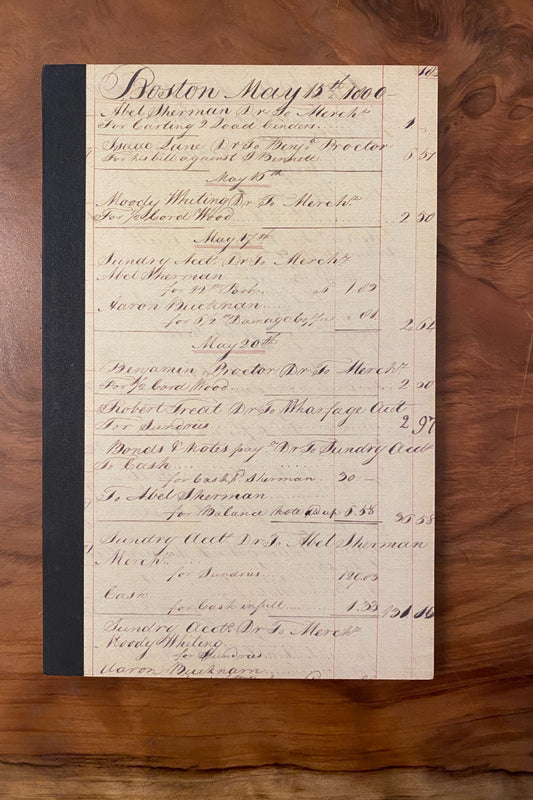 Boston May 15th 1800
Abel Sherman Dr To Merchs
For Carting 2 Load Cinders 1 -
Isaac Lane Dr To Benjn Proctor
For his bill against J Bennett 6 51
May 15th
Moody Whiting Dr To Merchs
For 1/2 Cord Wood 2 50
May 17th
Sundry Accts Dr To Merchs
Abel Sherman
for 22 lb Pork
Aaron Bucknam
for 5 1/2 lb Damage Coffee
2 64
May 20th
Benjamin Proctor Dr To Merchs
For 1/2 Cord Wood 2 50
Robert Treat Dr To Wharfage Acct
For Sundries 2 97
Bonds & Notes pay Dr To Sundry Accts
To Cash
for Cash pd Sherman 30 -
To Abel Sherman
for Balance note 5.58
35 58
Sundry Accts Dr To Abel Sherman
Merchs
for Sundries
Cash
for Cash in full
Sundry Accts Dr To Merchs
Moody Whiting
for Sundries
Aaron Bucknam